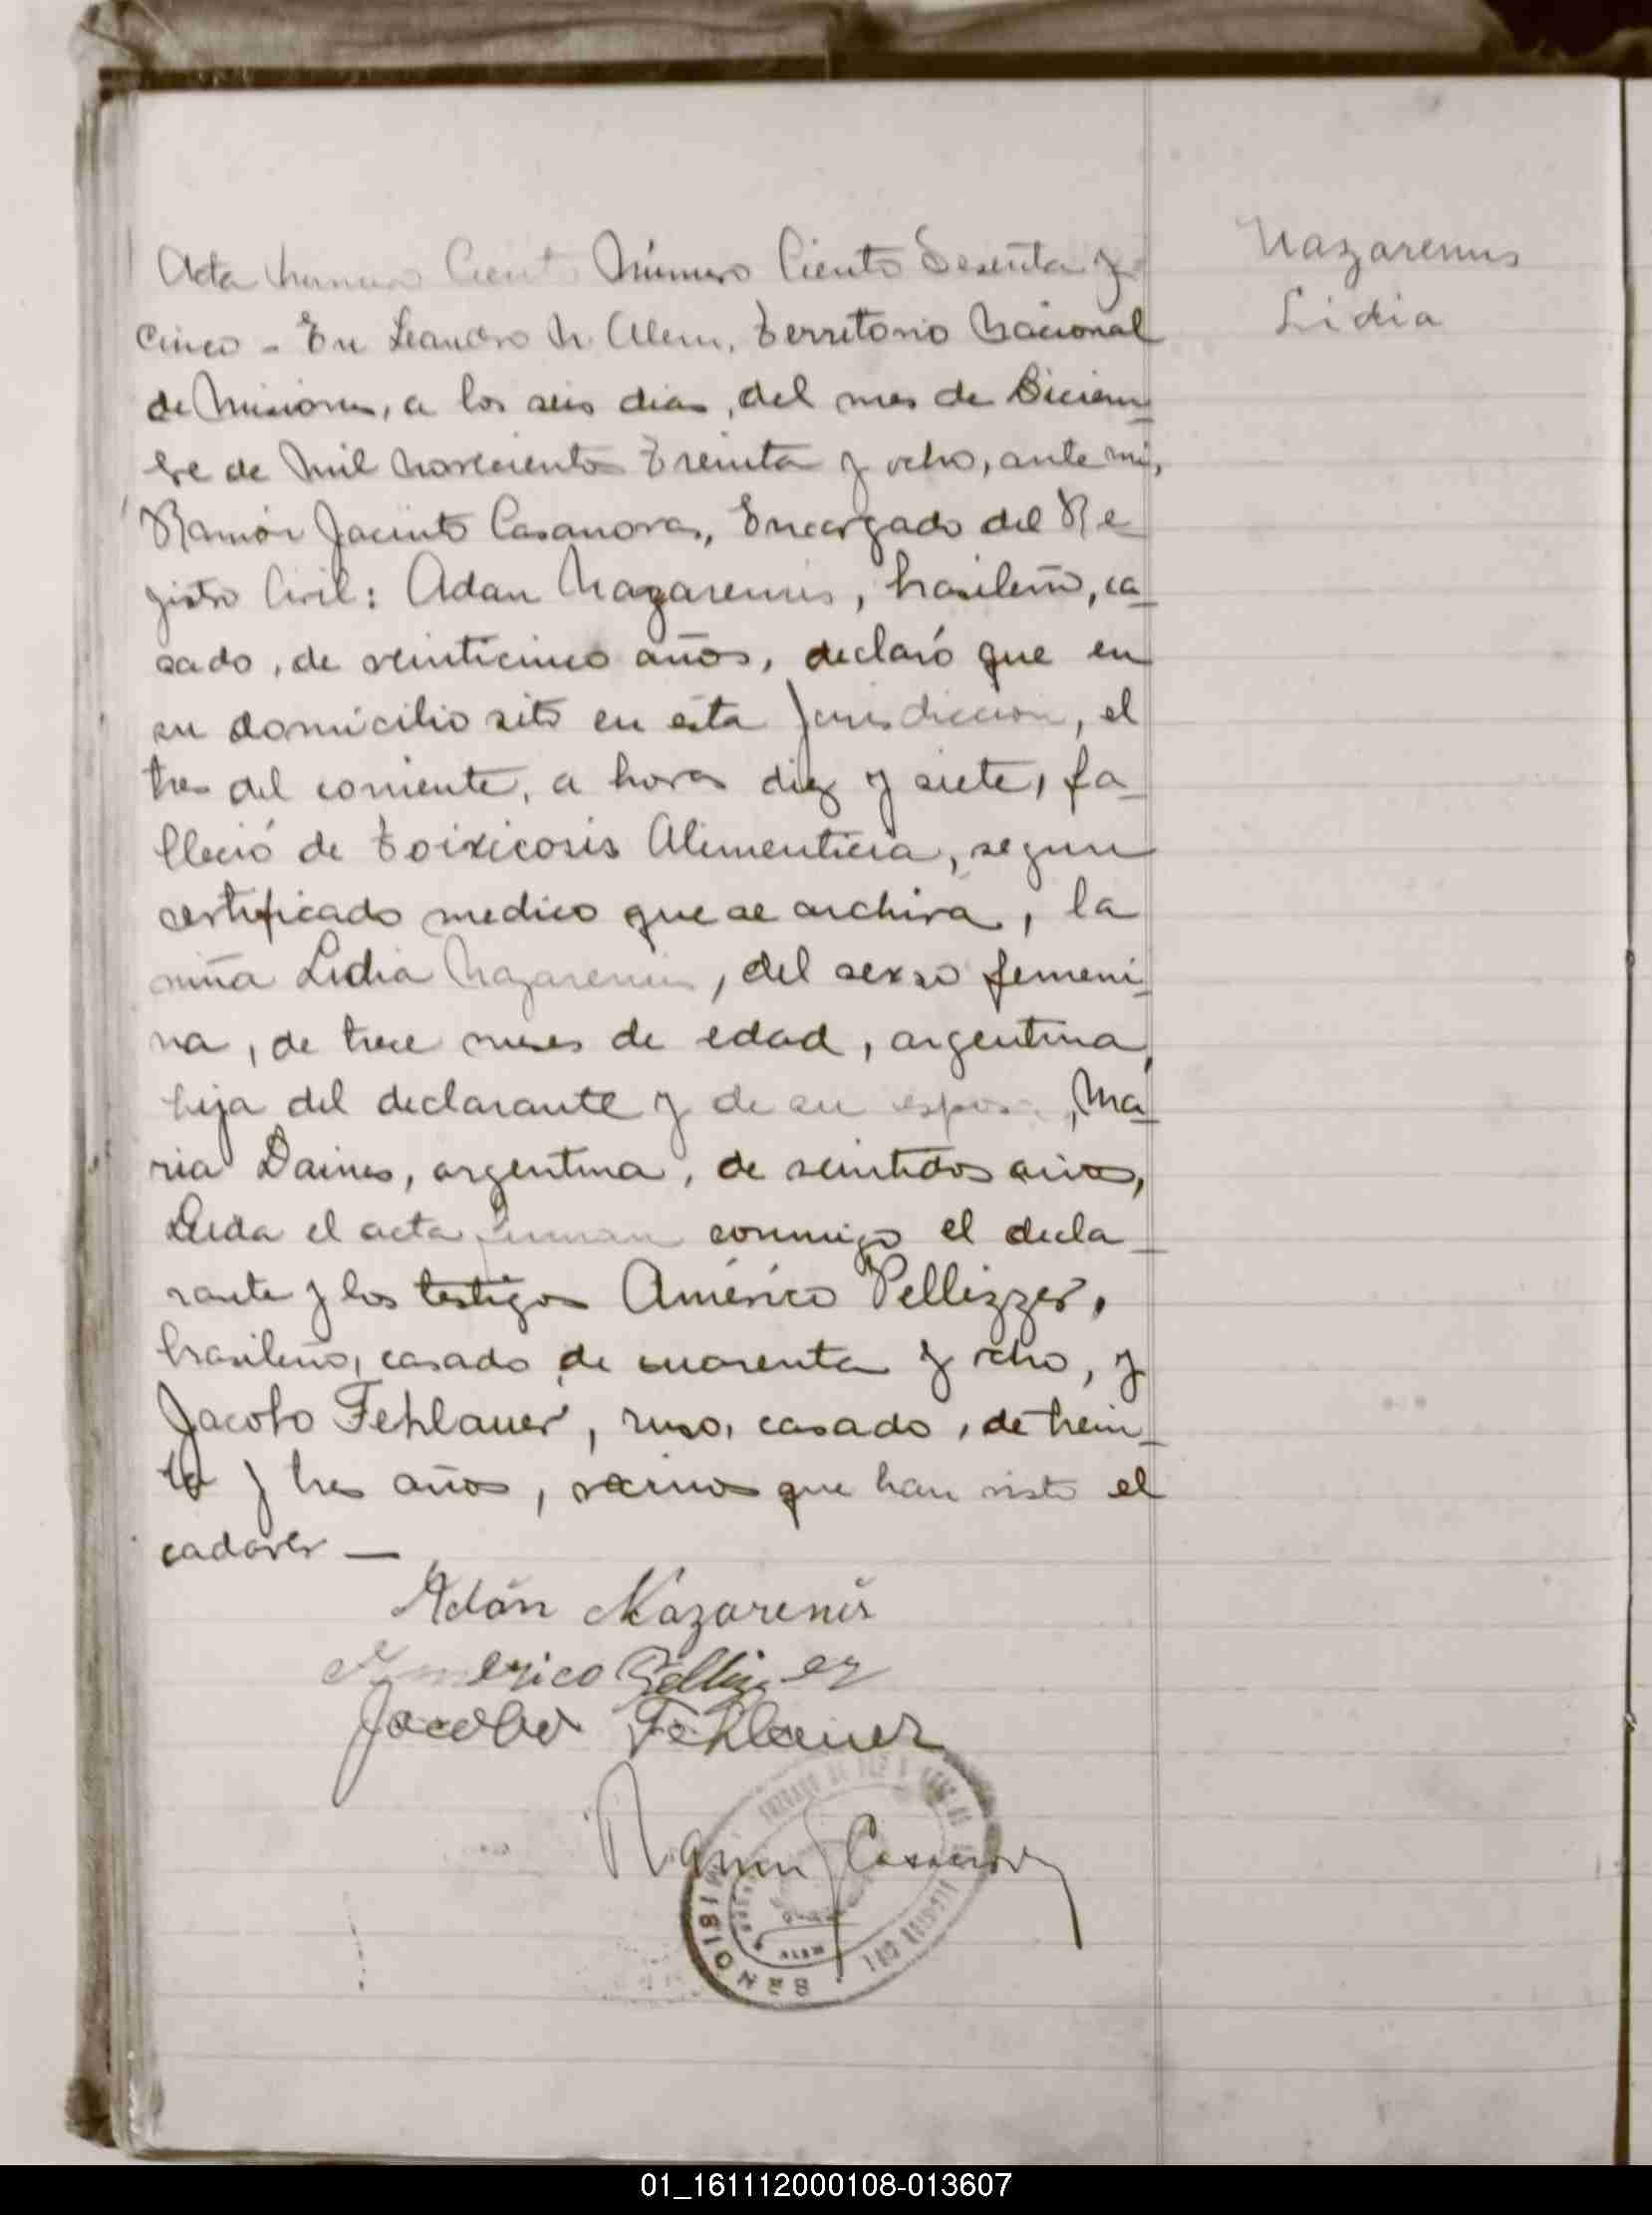 Nazarenus
Lidia
Acta numero Ciento Número Ciento Sesenta y
cinco - En Leandro N. Alem, Territorio Nacional
de Misiones, a los seis dias, del mes de Diciem_
bre de Mil novecientos treinta y ocho, ante mi,
Ramón Jacinto Casanova, Encargado del Re
gistro Civil: Adan Nazarenus, brasileño, ca_
sado, de veinticinco años, declaró que en
su domicilio sito en esta Jurisdiccion, el
tres del corriente, a horas diez y siete, fa_
lleció de Toixicosis Alimenticia, segun
certificado medico que se archiva, la
niña Lidia Nazarenus, del sexso femeni_
na, de trece meses de edad, argentina,
hija del declarante y de su esposa, Ma_
ria Daines, argentina, de veintidos años,
Leida el acta firman conmigo el decla_
rante y los testigos Américo Pellizzer,
brasileño, casado de cuarenta y ocho, y
Jacobo Fehlauer, ruso, casado, de trein_
ta y tres años, vecinos que han visto el
cadaver —
Adán Nazarenus
Americo Pellizzer
Jacobo Fehlauer
Ramon J Casanova
MISIONES
01_161112000108-013607